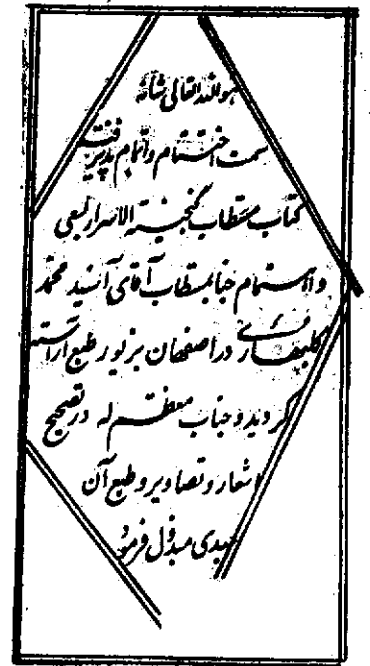 هو الله تعالی شانه
سمت اختتام و اتمام پذیرفت
کتاب مستطاب گنجینة الاسرار بسعی
و اهتمام جناب مستطاب آقای آسید محمد
در اصفهان بزیور طبع آراسته
گردید و جناب معظم له در تصحیح
اشعار و تصاویر و طبع آن
مبذول فرمود